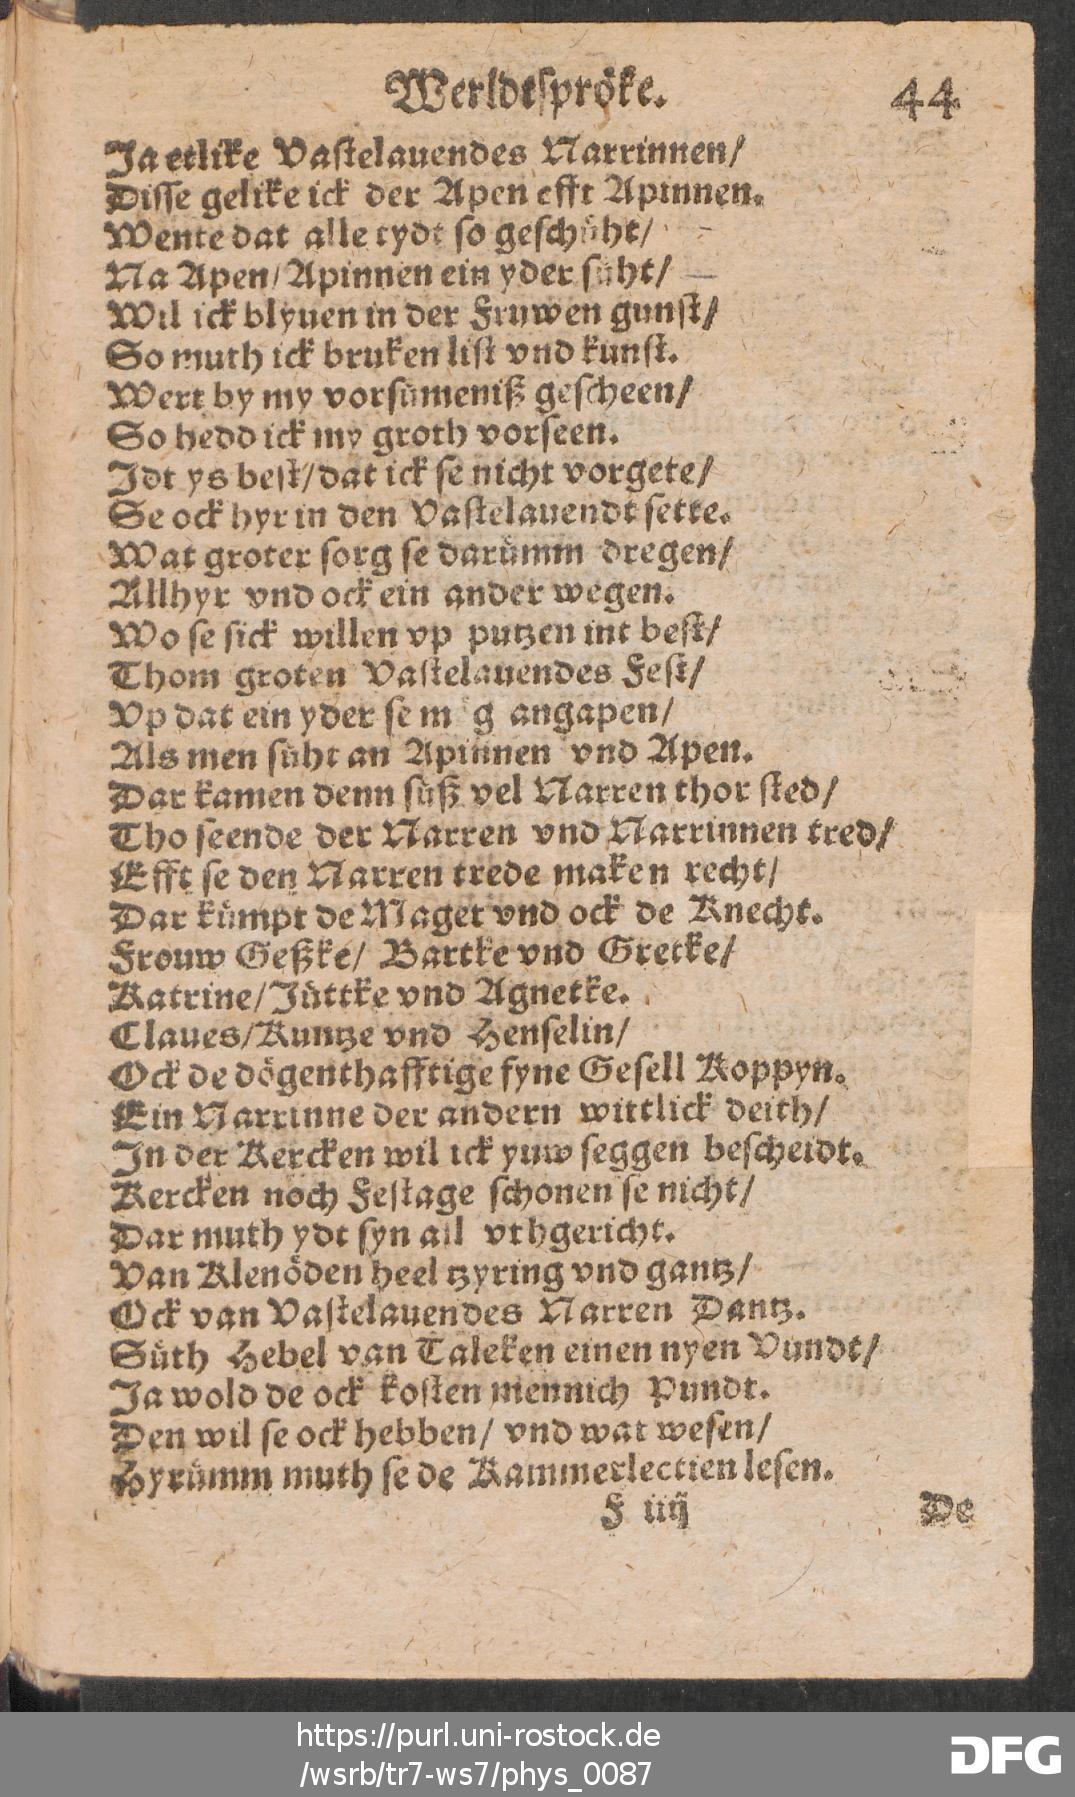 Werldtspröke. 44
Ja etlike Vastelauendes Narrinnen/
Disse gelike ick der Apen efft Apinnen.
Wente dat alle tydt so geschüht/
Na Apen/ Apinnen ein yder süht/
Wil ick blyuen in der Fruwen gunst/
So muth ick bruken list vnd kunst.
Wert by my vorsümeniß gescheen/
So hedd ick my groth vorseen.
Idt ys best/ dat ick se nicht vorgete/
Se ock hyr in den Vastelauendt sette.
Wat groter sorg se darümm dregen/
Allhyr vnd ock ein ander wegen.
Wo se sick willen vp putzen int best/
Thom groten Vastelauendes Fest/
Vp dat ein yder se m g angapen/
Als men süht an Apinnen vnd Apen.
Dar kamen denn süß vel Narren thor sted/
Tho seende der Narren vnd Narrinnen tred/
Efft se den Narren trede maken recht/
Dar kümpt de Maget vnd ock de Knecht.
Frouw Geßke/ Bartke vnd Gretke/
Katrine/ Jüttke vnd Agnetke.
Claues/ Kuntze vnd Henselin/
Ock de dögenthafftige fyne Gesell Koppyn.
Ein Narrinne der andern wittlick deith/
In der Kercken wil ick yuw seggen bescheidt.
Kercken noch Festage schonen se nicht/
Dar muth ydt syn all vthgericht.
Van Klenöden heel tzyring vnd gantz/
Ock van Vastelauendes Narren Dantz.
Süth Hebel van Taleken einen nyen Vundt/
Ja wold de ock kosten mennich Pundt.
Den wil se ock hebben/ vnd wat wesen/
Hyrümm muth se de Kammerlectien lesen.
F iiij De
https://purl.uni-rostock.de
/wsrb/tr7-ws7/phys_0087
DFG